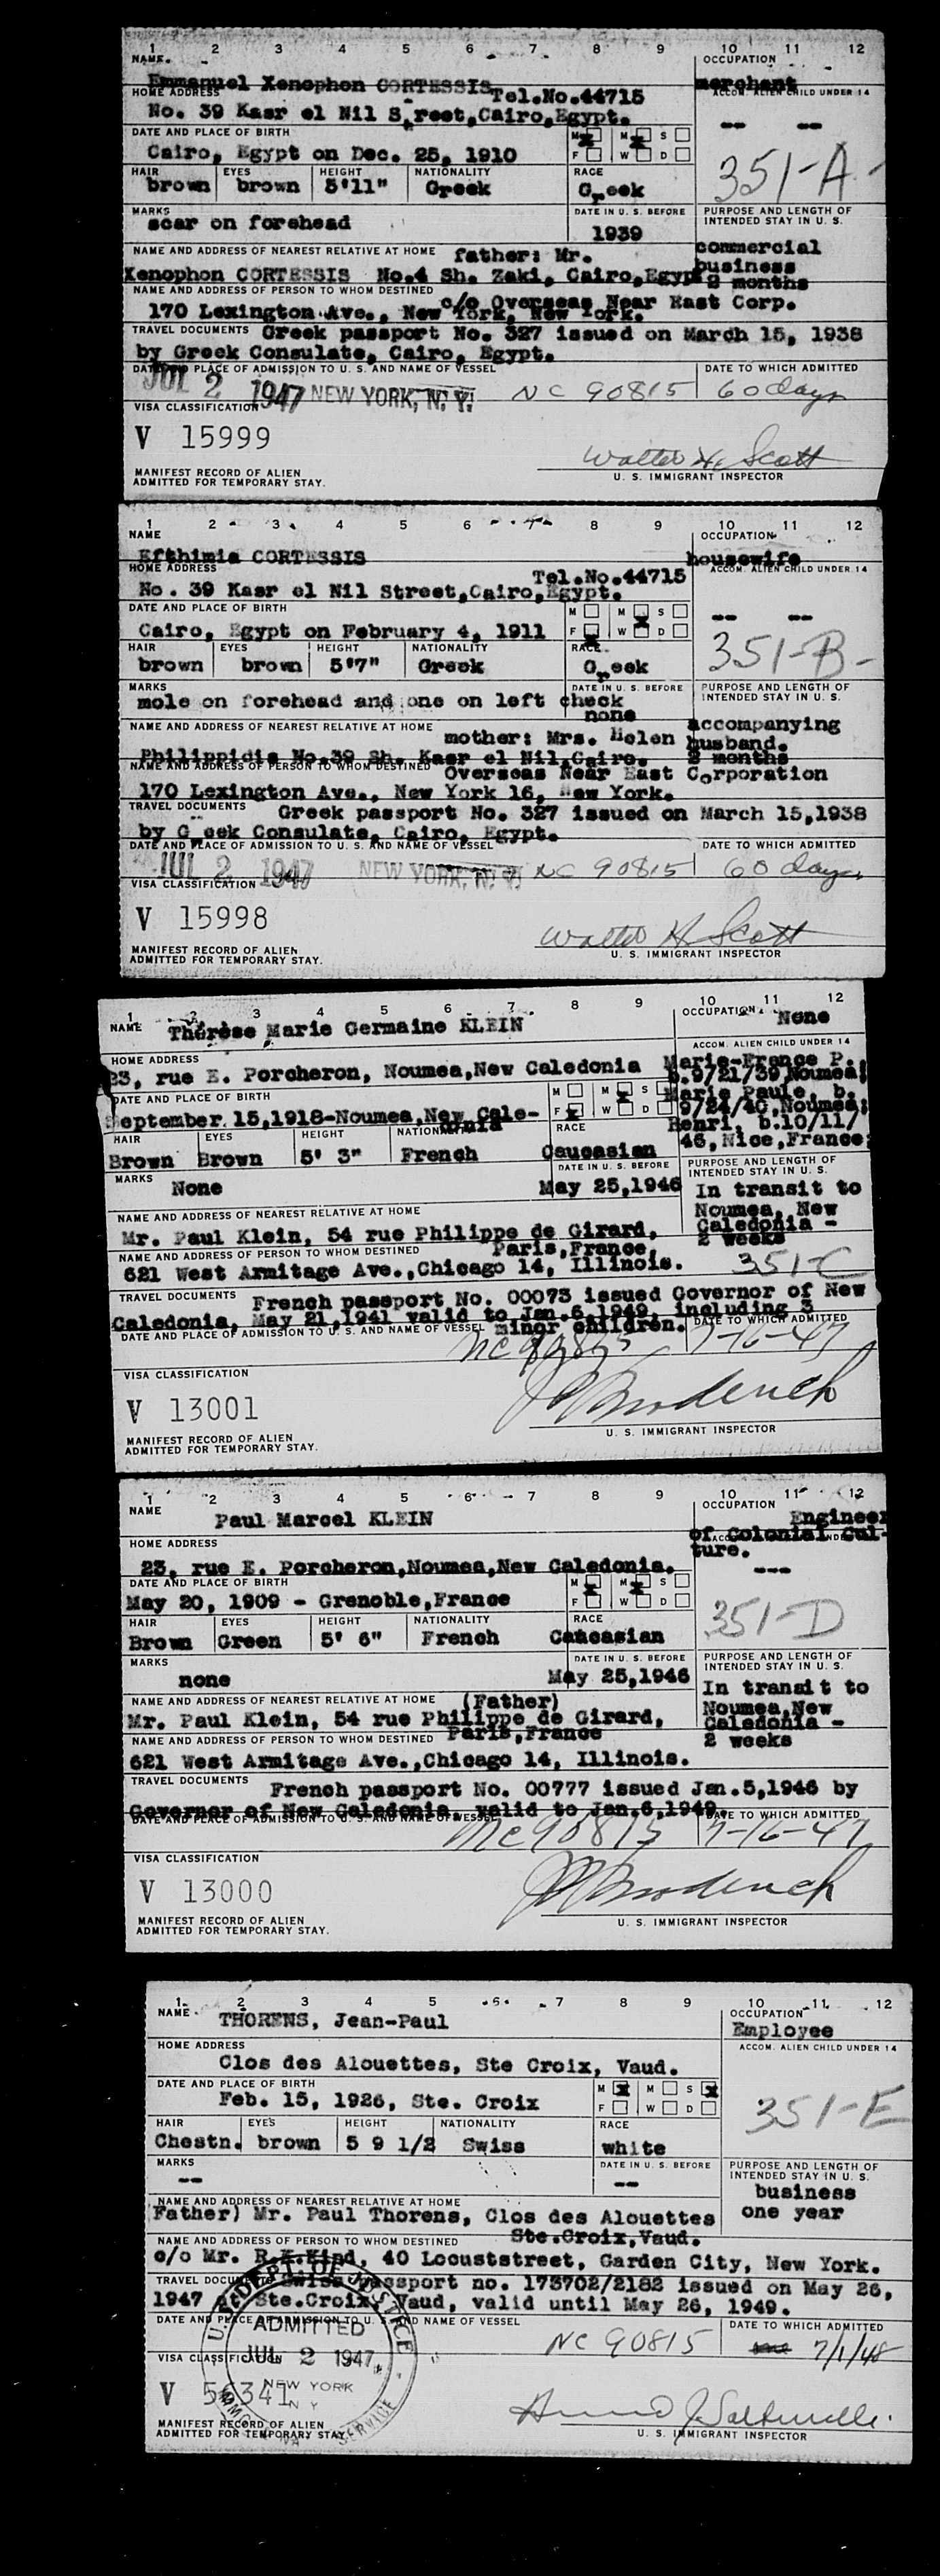 1 2 3 4 5 6 7 8 9 10 11 12
NAME. OCCUPATION
Emmanuel Xenophon CORTESSIS merchant
HOME ADDRESS Tel.No.44715 ACCOM. ALIEN CHILD UNDER 14
No. 39 Kasr el Nil Street,Cairo,Egypt.
DATE AND PLACE OF BIRTH M M S -- --
Cairo, Egypt on Dec. 25, 1910 F W D
HAIR EYES HEIGHT NATIONALITY RACE 351-A-
brown brown 5'11" Greek Greek
MARKS DATE IN U. S. BEFORE PURPOSE AND LENGTH OF
scar on forehead 1939 INTENDED STAY IN U. S.
NAME AND ADDRESS OF NEAREST RELATIVE AT HOME father: Mr. commercial
Xenophon CORTESSIS No.4 Sh. Zaki, Cairo,Egypt business
2 months
NAME AND ADDRESS OF PERSON TO WHOM DESTINED c/o Overseas Near East Corp.
170 Lexington Ave., New York, New York.
TRAVEL DOCUMENTS Greek passport No. 327 issued on March 15, 1938
by Greek Consulate, Cairo, Egypt.
DATE AND PLACE OF ADMISSION TO U. S. AND NAME OF VESSEL DATE TO WHICH ADMITTED
JUL 2 1947 NEW YORK, N. Y. NC 90815 60 days
VISA CLASSIFICATION
V 15999
Walter H. Scott
MANIFEST RECORD OF ALIEN U. S. IMMIGRANT INSPECTOR
ADMITTED FOR TEMPORARY STAY.
1 2 3 4 5 6 7 8 9 10 11 12
NAME OCCUPATION
Efthimia CORTESSIS housewife
HOME ADDRESS Tel.No.44715 ACCOM. ALIEN CHILD UNDER 14
No. 39 Kasr el Nil Street,Cairo,Egypt.
DATE AND PLACE OF BIRTH M M S -- --
Cairo, Egypt on February 4, 1911 F W D
HAIR EYES HEIGHT NATIONALITY RACE 351-B-
brown brown 5'7" Greek Greek
MARKS DATE IN U. S. BEFORE PURPOSE AND LENGTH OF
mole on forehead and one on left check INTENDED STAY IN U. S.
none
NAME AND ADDRESS OF NEAREST RELATIVE AT HOME mother: Mrs. Helen accompanying
husband.
Philippidis No.39 Sh. Kasr el Nil,Cairo. 2 months
NAME AND ADDRESS OF PERSON TO WHOM DESTINED Overseas Near East Corporation
170 Lexington Ave., New York 16, New York.
TRAVEL DOCUMENTS Greek passport No. 327 issued on March 15,1938
by Greek Consulate, Cairo, Egypt.
DATE AND PLACE OF ADMISSION TO U. S. AND NAME OF VESSEL DATE TO WHICH ADMITTED
JUL 2 1947 NEW YORK, N. Y. NC 90815 60 days
VISA CLASSIFICATION
V 15998
Walter H. Scott
MANIFEST RECORD OF ALIEN U. S. IMMIGRANT INSPECTOR
ADMITTED FOR TEMPORARY STAY.
1 2 3 4 5 6 7 8 9 10 11 12
NAME Thérèse Marie Germaine KLEIN OCCUPATION None
HOME ADDRESS ACCOM. ALIEN CHILD UNDER 14
23, rue E. Porcheron, Noumea,New Caledonia Marie-France P.,
b.9/21/39,Noumea;
DATE AND PLACE OF BIRTH M M S Marie Paule, b.
September 15,1918-Noumea,New Cale- F W D 9/24/40,Noumea;
donia Henri, b.10/11/
HAIR EYES HEIGHT NATIONALITY RACE 46,Nice,France;
Brown Brown 5' 3" French Caucasian
MARKS DATE IN U. S. BEFORE PURPOSE AND LENGTH OF
INTENDED STAY IN U. S.
None May 25,1946 In transit to
NAME AND ADDRESS OF NEAREST RELATIVE AT HOME Noumea, New
Mr. Paul Klein, 54 rue Philippe de Girard, Caledonia -
Paris,France, 2 weeks
NAME AND ADDRESS OF PERSON TO WHOM DESTINED
621 West Armitage Ave.,Chicago 14, Illinois. 351-C
TRAVEL DOCUMENTS French passport No. 00073 issued Governor of New
Caledonia, May 21,1941 valid to Jan.6,1949, including 3
minor children.
DATE AND PLACE OF ADMISSION TO U. S. AND NAME OF VESSEL DATE TO WHICH ADMITTED
NC 90815 7-16-47
VISA CLASSIFICATION
V 13001
MANIFEST RECORD OF ALIEN U. S. IMMIGRANT INSPECTOR
ADMITTED FOR TEMPORARY STAY.
1 2 3 4 5 6 7 8 9 10 11 12
NAME OCCUPATION
Paul Marcel KLEIN Engineer
HOME ADDRESS of Colonial Cul-
ture.
23, rue E. Porcheron,Noumea,New Caledonia.
DATE AND PLACE OF BIRTH M M S ---
May 20, 1909 - Grenoble,France F W D
HAIR EYES HEIGHT NATIONALITY RACE 351-D
Brown Green 5' 6" French Caucasian
MARKS DATE IN U. S. BEFORE PURPOSE AND LENGTH OF
INTENDED STAY IN U. S.
none May 25,1946 In transit to
NAME AND ADDRESS OF NEAREST RELATIVE AT HOME (Father) Noumea,New
Mr. Paul Klein, 54 rue Philippe de Girard, Caledonia -
Paris,France 2 weeks
NAME AND ADDRESS OF PERSON TO WHOM DESTINED
621 West Armitage Ave.,Chicago 14, Illinois.
TRAVEL DOCUMENTS French passport No. 00777 issued Jan.5,1946 by
Governor of New Caledonia, valid to Jan.6,1949.
DATE AND PLACE OF ADMISSION TO U. S. AND NAME OF VESSEL DATE TO WHICH ADMITTED
NC 90815 7-16-47
VISA CLASSIFICATION
V 13000
MANIFEST RECORD OF ALIEN U. S. IMMIGRANT INSPECTOR
ADMITTED FOR TEMPORARY STAY.
1 2 3 4 5 6 7 8 9 10 11 12
NAME THORENS, Jean-Paul OCCUPATION
Employee
HOME ADDRESS ACCOM. ALIEN CHILD UNDER 14
Clos des Alouettes, Ste Croix, Vaud.
DATE AND PLACE OF BIRTH M M S
Feb. 15, 1926, Ste. Croix F W D 351-E
HAIR EYES HEIGHT NATIONALITY RACE
Chestn. brown 5 9 1/2 Swiss white
MARKS DATE IN U. S. BEFORE PURPOSE AND LENGTH OF
INTENDED STAY IN U. S.
-- -- business
NAME AND ADDRESS OF NEAREST RELATIVE AT HOME one year
Father) Mr. Paul Thorens, Clos des Alouettes
Ste.Croix,Vaud.
NAME AND ADDRESS OF PERSON TO WHOM DESTINED
c/o Mr. R.K.Kind, 40 Locuststreet, Garden City, New York.
TRAVEL DOCUMENTS Swiss passport no. 173702/2182 issued on May 26,
1947 at Ste.Croix, Vaud, valid until May 26, 1949.
DATE AND PLACE OF ADMISSION TO U. S. AND NAME OF VESSEL DATE TO WHICH ADMITTED
U.S. DEPT. OF JUSTICE
ADMITTED
JUL 2 1947
NEW YORK
N Y
SERVICE
NC 90815 7/1/48
VISA CLASSIFICATION
V 56341
MANIFEST RECORD OF ALIEN U. S. IMMIGRANT INSPECTOR
ADMITTED FOR TEMPORARY STAY.